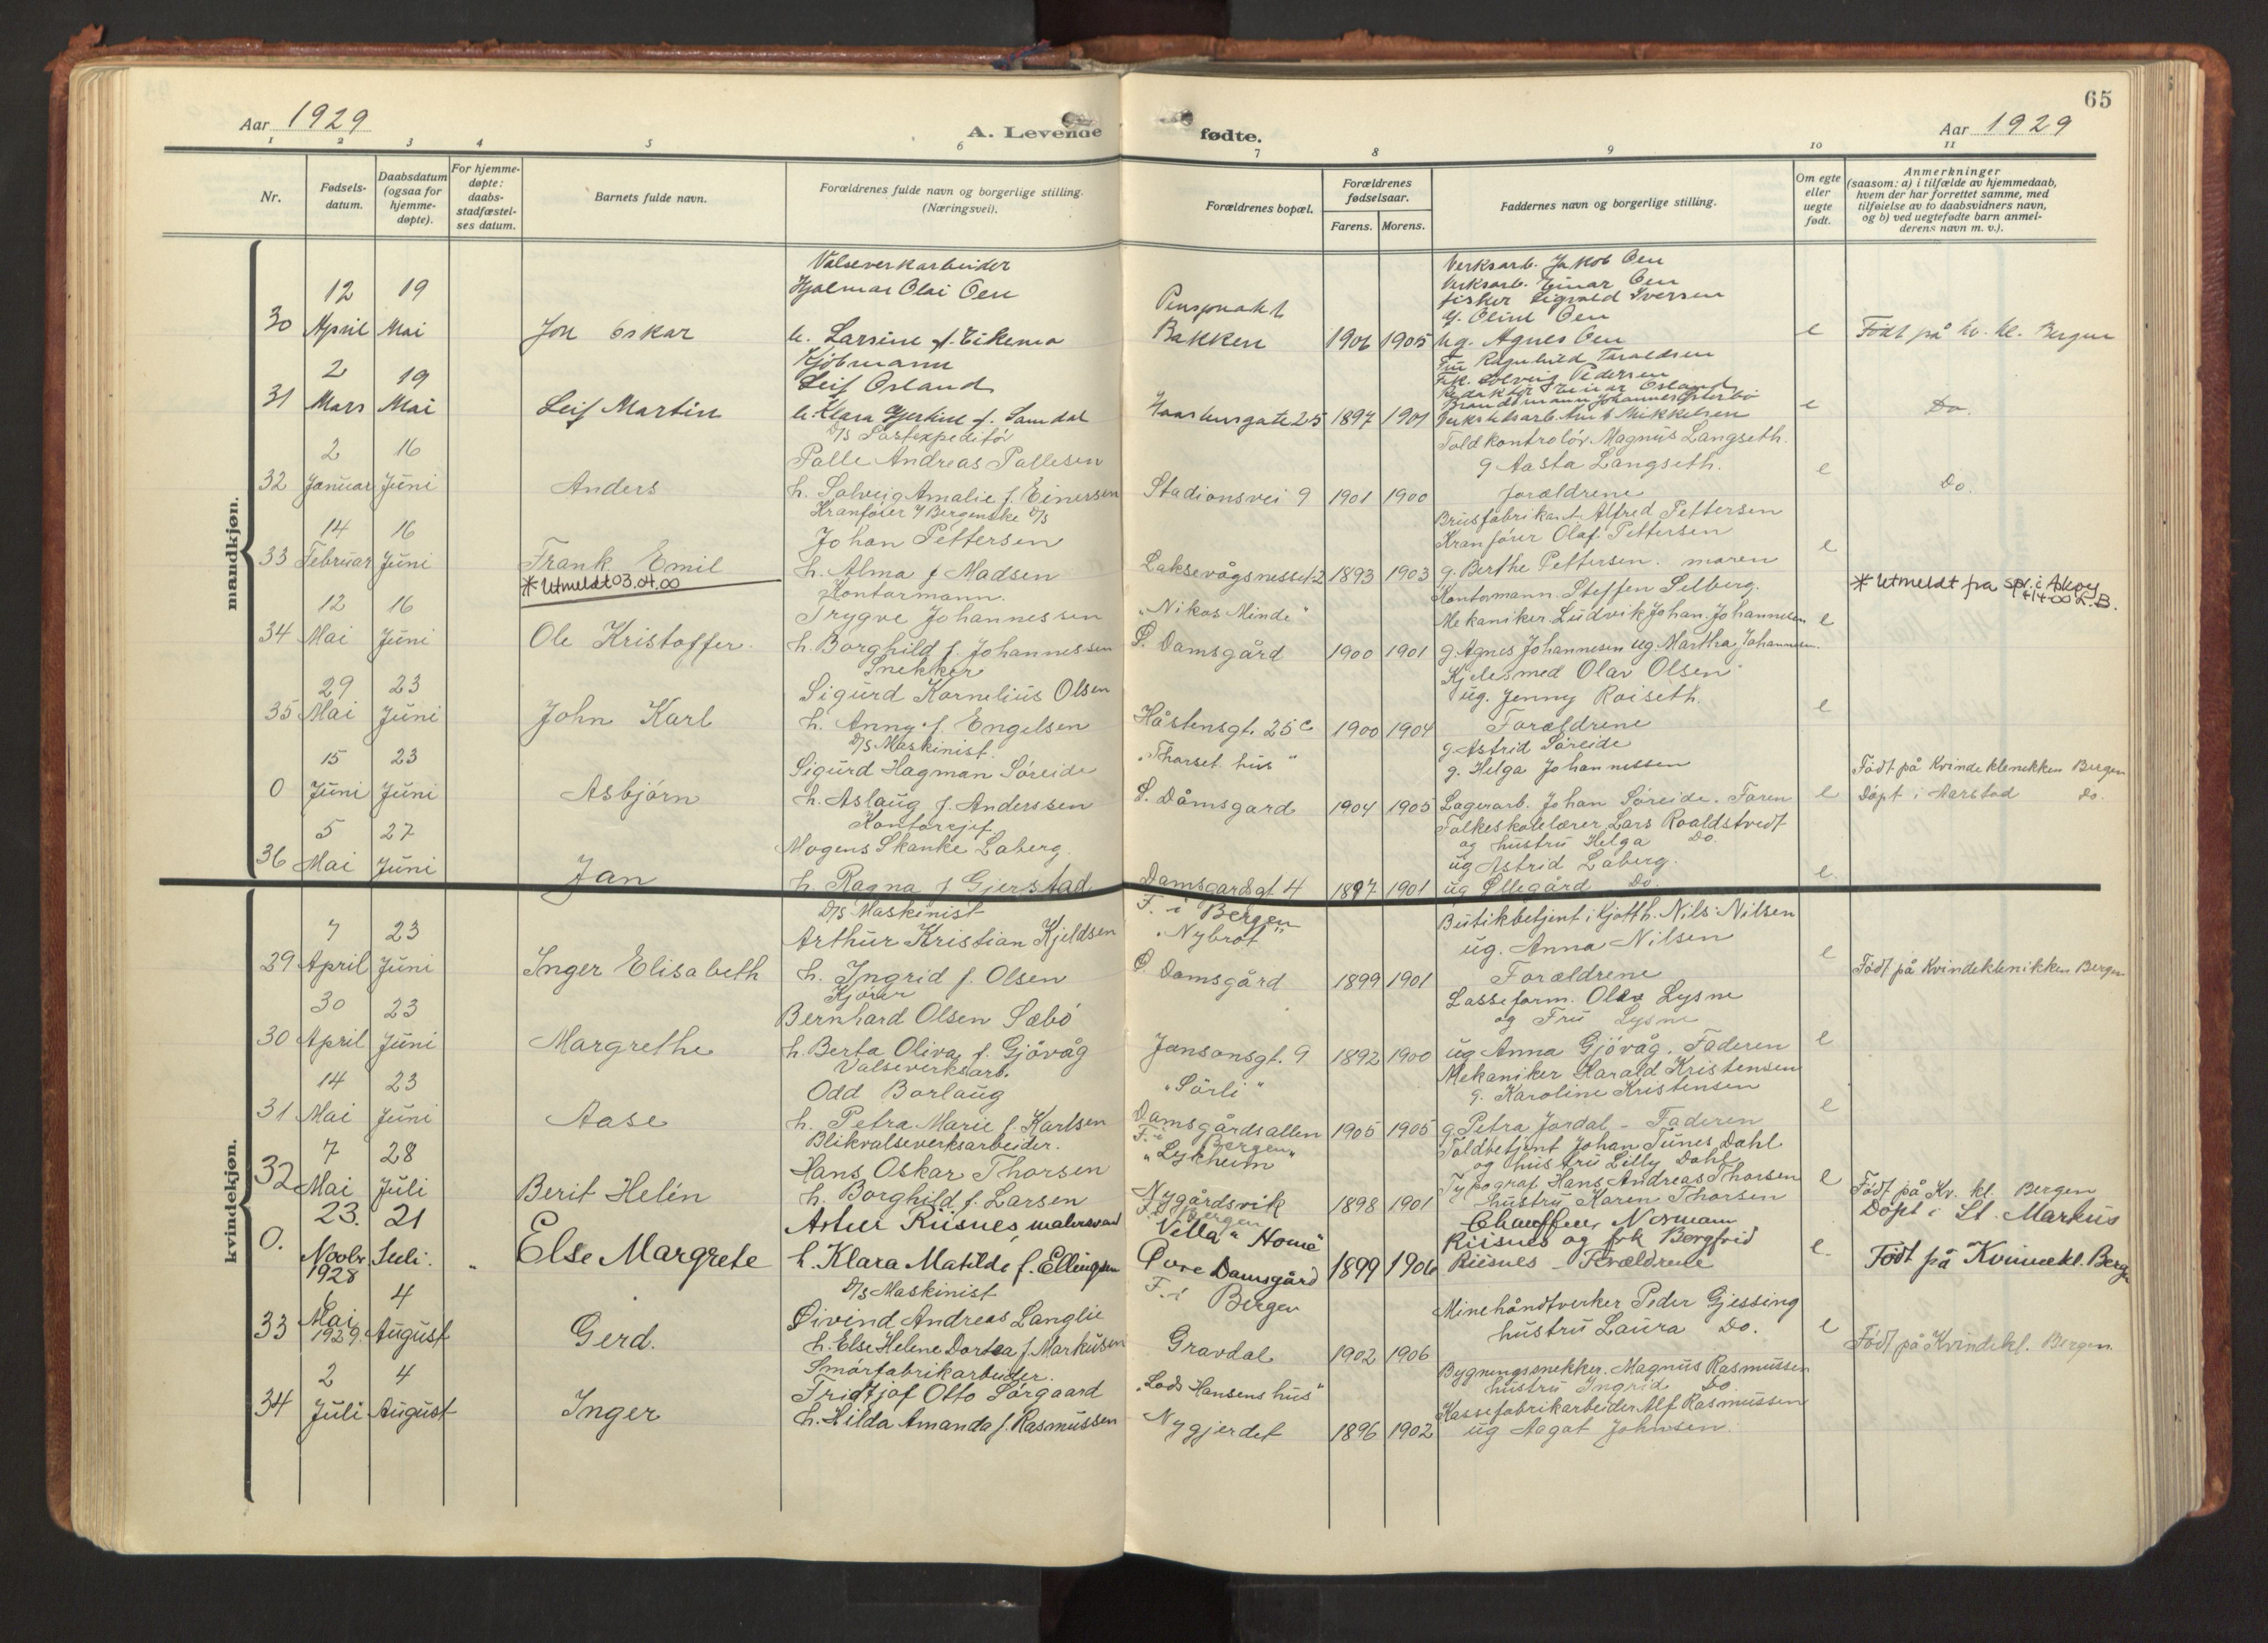 65
Aar 1929
A. Levende fødte.
Aar 1929
1 2 3 4 5 6 7 8 9 10 11
Nr.
Fødsels-
datum.
Daabsdatum
(ogsaa for
hjemme-
døpte).
For hjemme-
døpte:
daabs-
stadfæstel-
ses datum.
Barnets fulde navn.
Forældrenes fulde navn og borgerlige stilling.
(Næringsvei).
Forældrenes bopæl.
Forældrenes
fødselsaar.
Farens. Morens.
Faddernes navn og borgerlige stilling.
Om egte
eller
uegte
født.
Anmerkninger
(saasom: a) i tilfælde av hjemmedaab,
hvem der har forrettet samme, med
tilføielse av to daabsvidners navn,
og b) ved uegtefødte barn anmel-
derens navn m. v.).
mandkjøn.
30
12 April
19 Mai
Jon Oskar
Valseverkarbeider
Hjalmar Olai Oen
h. Larsine f. Eikemo
Bakken
1906 1905
Verksarb. Jakob Oen
Verksarb. Einar Oen
fisker Sigvald Iversen
g. Oline Oen
ug. Agnes Oen
e
Födt på kv. kl. Bergen
31
2 Mars
19 Mai
Leif Martin
Kjöbmann
Leif Osland
h. Klara Gjertine f. Samdal
25 1897 1901
Fru Ragnhild Taraldsen
Frk. Solveig Pedersen
Redaktör Einar Osland
Brandmann Johannes
Verkstedsarb. Mikkelsen
e
Do.
32
2 Januar
16 Juni
Anders
D/S Postexpeditör
Palle Andreas Pallesen
h. Solveig Amalie f. Einersen
Stadionsvei 9
1901 1900
Toldkontrolör Magnus Langseth.
g Aasta Langseth.
forældrene
e
Do.
33
14 Februar
16 Juni
Frank Emil
* Utmeldt 03.04.00
Kranförer i Bergenske D/S
Johan Pettersen
h. Alma f Madsen
Laksevågsnesset 2
1893 1903
Brusfabrikant Alfred Pettersen
Kranförer Olaf Pettersen
g. Berthe Pettersen. moren
e
* Utmeldt fra spr. i Askøy
34
12 Mai
16 Juni
Ole Kristoffer.
Kontormann.
Trygve Johannessen
h. Borghild f. Johannessen
"Nikos Minde"
Damsgård
1900 1901
Kontormann Steffen Selberg.
Mekaniker Ludvik Johan Johannesen
g. Agnes Johannesen ug. Martha Johannesen.
e
35
29 Mai
23 Juni
John Karl
Snekker
Sigurd Kornelius Olsen
h. Anny f. Engelsen
Håstensgt. 25 c
1900 1904
Kjelesmed Olav Olsen
ug. Jenny Roiseth.
Forældrene
e
0
15 Juni
23 Juni
Asbjörn
D/S Maskinist.
Sigurd Hagman Söreide
h. Aslaug f. Anderssen
"Thorset hus"
Damsgard
1904 1905
g. Astrid Söreide
g. Helga Johannessen
Lagerarb. Johan Söreide. Faren
e
Födt på Kvindeklenikken Bergen
Döpt i Aarstad do.
36
5 Mai
27 Juni
Jan
Kontorsjef
Mogens Skanke Laberg.
h. Ragna f Gjerstad
Damsgardsgt 4
1897 1901
Folkeskolelærer Lars Roaldstvedt
og hustru Helga Do.
ug Astrid Laberg.
ug Øllegård Do.
e.
kvindekjøn.
29
7 April
23 Juni
Inger Elisabeth
D/S Maskinist
Arthur Kristian Kjeldsen
h. Ingrid f. Olsen
F. i Bergen
"Nybrot"
Ø Damsgård
1899 1901
Butikbetjent i Kjötth. Nils Nilsen
ug. Anna Nilsen
Forældrene
e
Födt på Kvindeklenikken Bergen
30
30 April
23 Juni
Margrethe
Kjörer
Bernhard Olsen Sæbö
h. Berta Oliva f. Gjövåg
Jansonsgt. 9
1892 1900
Lasseform. Olav Lysne
og Fru Lysne
ug Anna Gjövåg. Faderen
e
31
14 Mai
23 Juni
Aase
Valseverksarb.
Odd Borlaug
h. Petra Marie f. Karlsen
"Sörli"
Damsgårdsallen
1905 1905
Mekaniker Harald Kristensen
g. Karoline Kristensen
g. Petra Jordal - Faderen
e
32
7 Mai
28 Juli
Berit Helén
Blikvalseverksarbeider.
Hans Oskar Thorsen
h. Borghild f. Larsen
F. i Bergen
"Lykheim"
Nygårdsvik
1898 1901
Toldbetjent Johan Tunes Dahl
og hustru Lilly Dahl
Typograf Hans Andreas Thorsen
hustru Karen Thorsen
e
Födt på Kv. kl. Bergen
0.
23. Novbr 1928
21 Juli.
"
Else Margrete
Artur Riisnes, malersvend
h. Klara Matilde f. Ellingsen
F. i Bergen
Villa "Home"
Øvre Damsgård
1899 1906
Chauffeur Normann
Riisnes og frk Borgfrid
Riisnes - Forældrene
e.
Döpt i St. Markus
Födt på Kvinnekl. Bergen
33
6 Mai 1929.
4 August
Gerd.
D/S Maskinist
Öivind Andreas Langlie
h. Else Helene Dortea f. Markusen
F. i Bergen
Gravdal
1902 1906
Minehåndtverker Peder Gjessing
hustru Laura Do.
e
Födt på Kvindekl. Bergen.
34
2 Juli
4 August
Inger
Smörfabrikarbeider.
Fridtjof Otto Sörgaard
h. Hilda Amanda f. Rasmussen
"Lods Hansens hus"
Nygjerdet
1896 1902
Bygningssnekker. Magnus Rasmussen
hustru Ingrid Do.
Kassefabrikarbeider Alf Rasmussen
ug Aagot Johnsen.